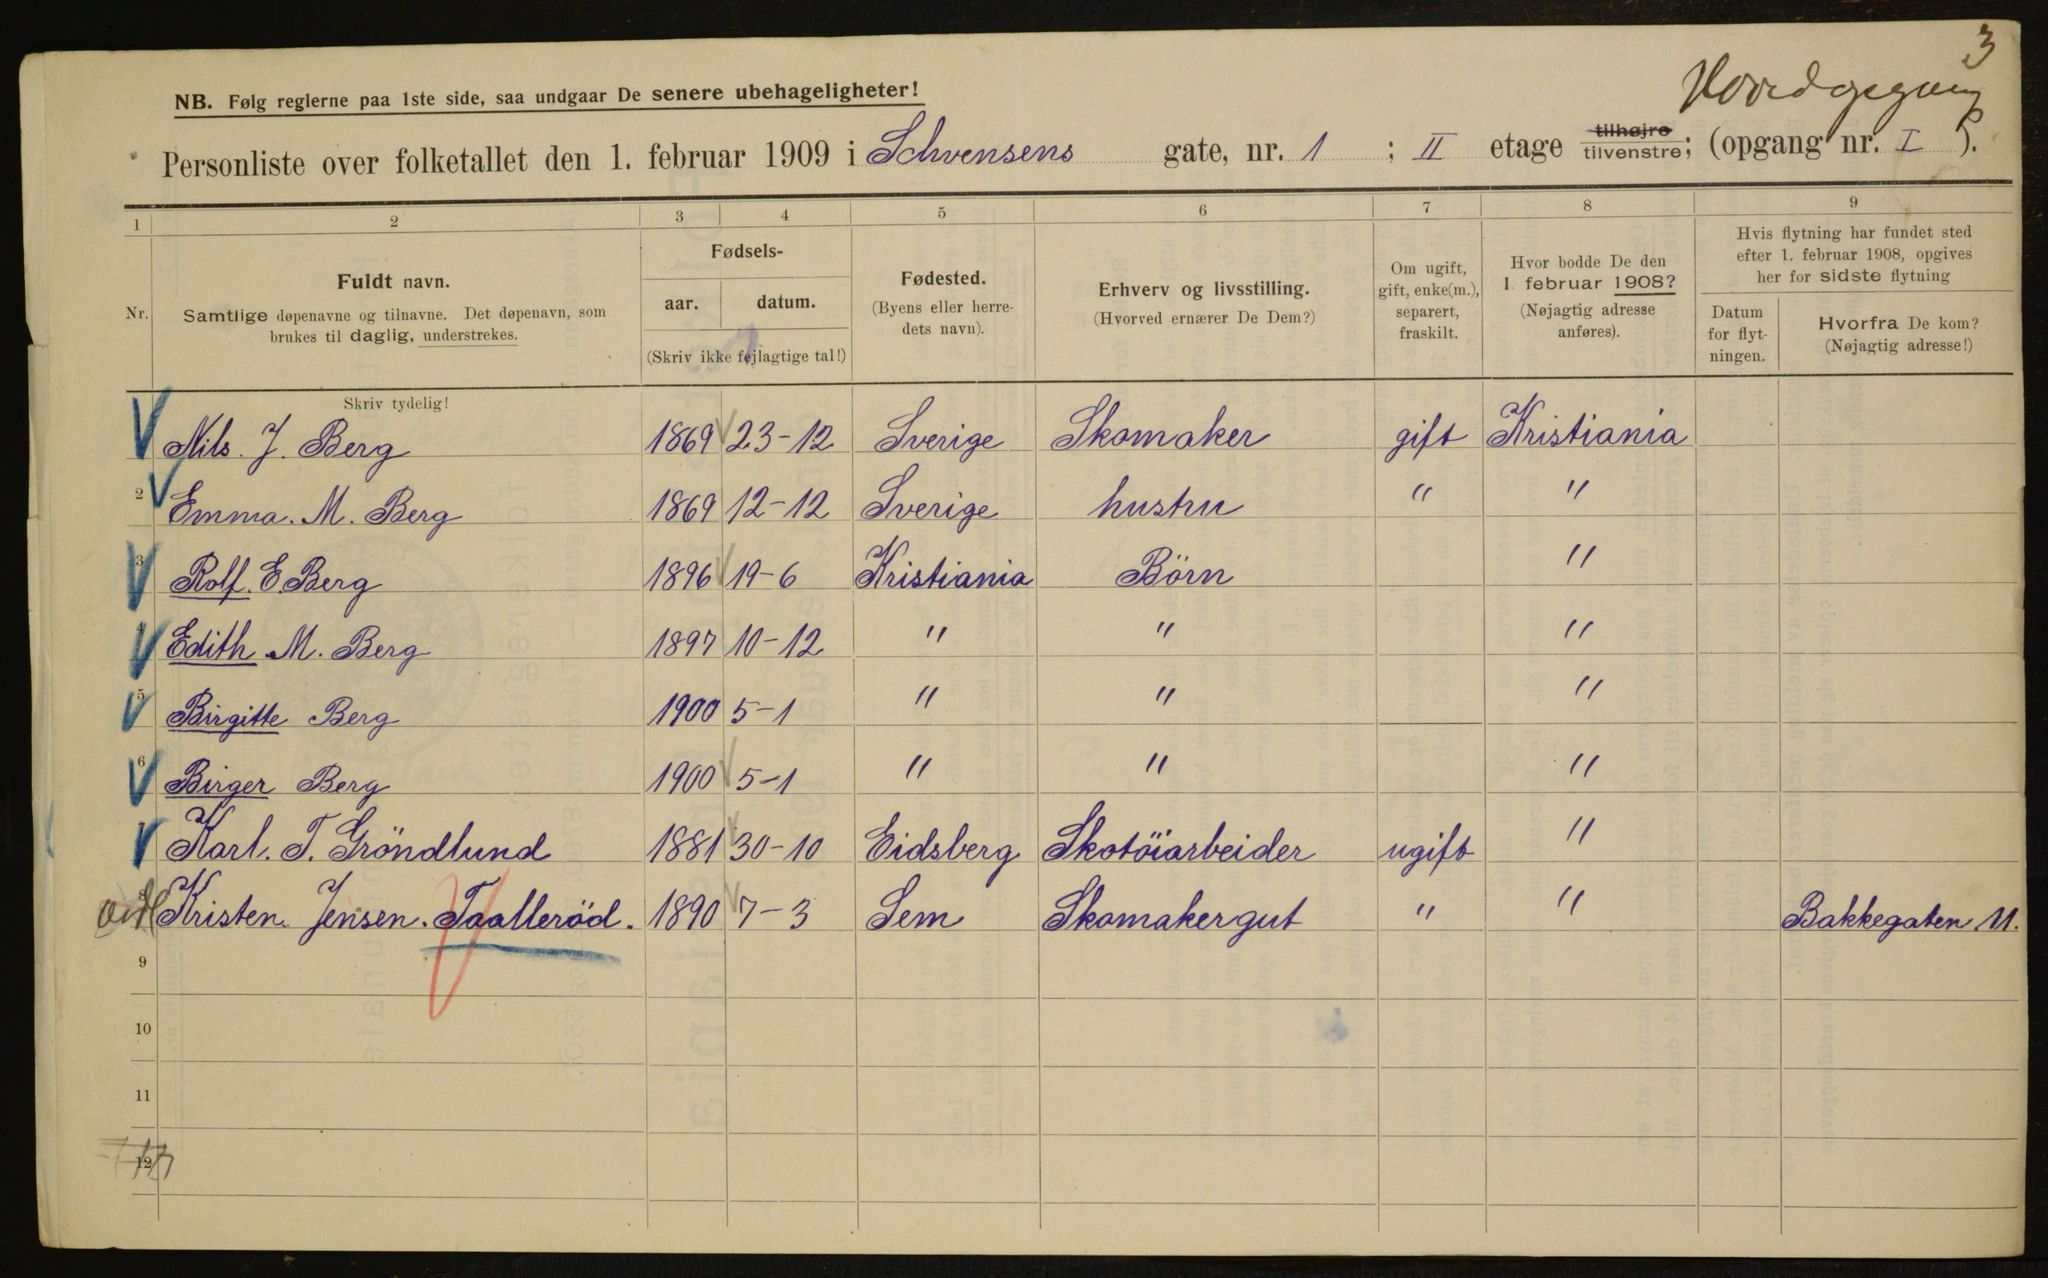 3
NB. Følg reglerne paa 1ste side, saa undgaar De senere ubehageligheter!
Personliste over folketallet den 1. februar 1909 i Schvensens gate, nr. 1 ; II etage tilhøjre tilvenstre; (opgang nr. I ).
1 2 3 4 5 6 7 8 9
Nr.
Fuldt navn.
Samtlige døpenavne og tilnavne. Det døpenavn, som
brukes til daglig, understrekes.
Skriv tydelig!
Fødsels-
aar. datum.
(Skriv ikke fejlagtige tal!)
Fødested.
(Byens eller herre-
dets navn).
Erhverv og livsstilling.
(Hvorved ernærer De Dem?)
Om ugift,
gift, enke(m.),
separert,
fraskilt.
Hvor bodde De den
1. februar 1908?
(Nøjagtig adresse
anføres).
Hvis flytning har fundet sted
efter 1. februar 1908, opgives
her for sidste flytning
Datum
for flyt-
ningen.
Hvorfra De kom?
(Nøjagtig adresse!)
Nils. J. Berg 1869 23-12 Sverige Skomaker gift Kristiania
2 Emma. M. Berg 1869 12-12 Sverige hustru " "
3 Rolf. E. Berg 1896 19-6 Kristiania Börn "
4 Edith. M. Berg 1897 10-12 " " "
5 Birgitte Berg 1900 5-1 " " "
6 Birger Berg 1900 5-1 " " "
7 Karl. T. Gröndlund 1881 30-10 Eidsberg Skotöiarbeider ugift "
8 Kristen Jensen. Taalleröd. 1890 7-3 Sem Skomakergut " " Bakkegaten 11.
9
10
11
12